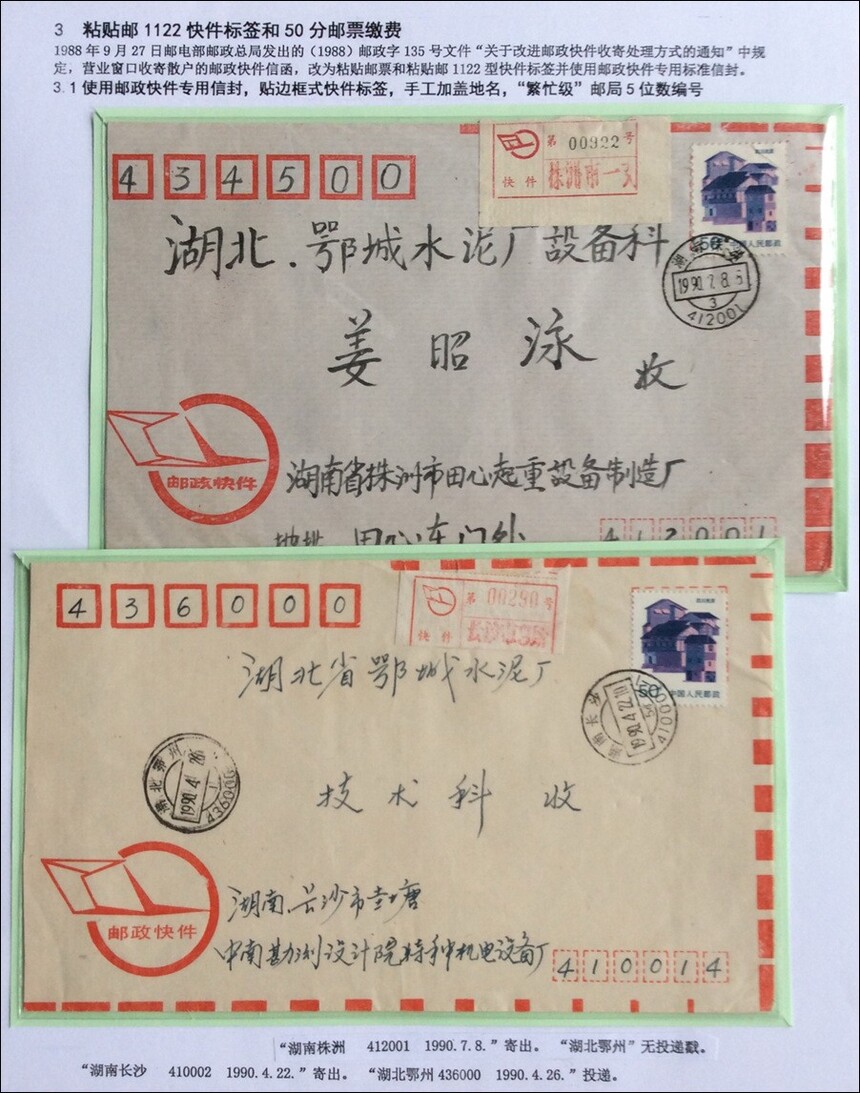 3 粘贴邮1122快件标签和50分邮票缴费
1988年9月27日邮电部邮政总局发出的（1988）邮政字135号文件“关于改进邮政快件收寄处理方式的通知”中规
定，营业窗口收寄散户的邮政快件信函，改为粘贴邮票和粘贴邮1122型快件标签并使用邮政快件专用标准信封。
3.1使用邮政快件专用信封，贴边框式快件标签，手工加盖地名，“繁忙级”邮局5位数编号
434500
第00922号
快件 株洲市一支
湖北.鄂城水泥厂设备科
50 中国人民邮政
湖南株洲
1990.7.8.
3
412001
姜昭泳 收
邮政快件
湖南省株洲市田心起重设备制造厂
地址 田心东门外
412001
436000
第00290号
快件
湖北省鄂城水泥厂
50 中国人民邮政
湖南长沙
1990.4.22.10
湖北鄂州
1990.4.26
436000
技术科 收
邮政快件
湖南.长沙市圭塘
中南勘测设计院特种机电设备厂
410014
“湖南株洲 412001 1990.7.8.”寄出。 “湖北鄂州”无投递戳。
“湖南长沙 410002 1990.4.22.”寄出。 “湖北鄂州436000 1990.4.26.”投递。